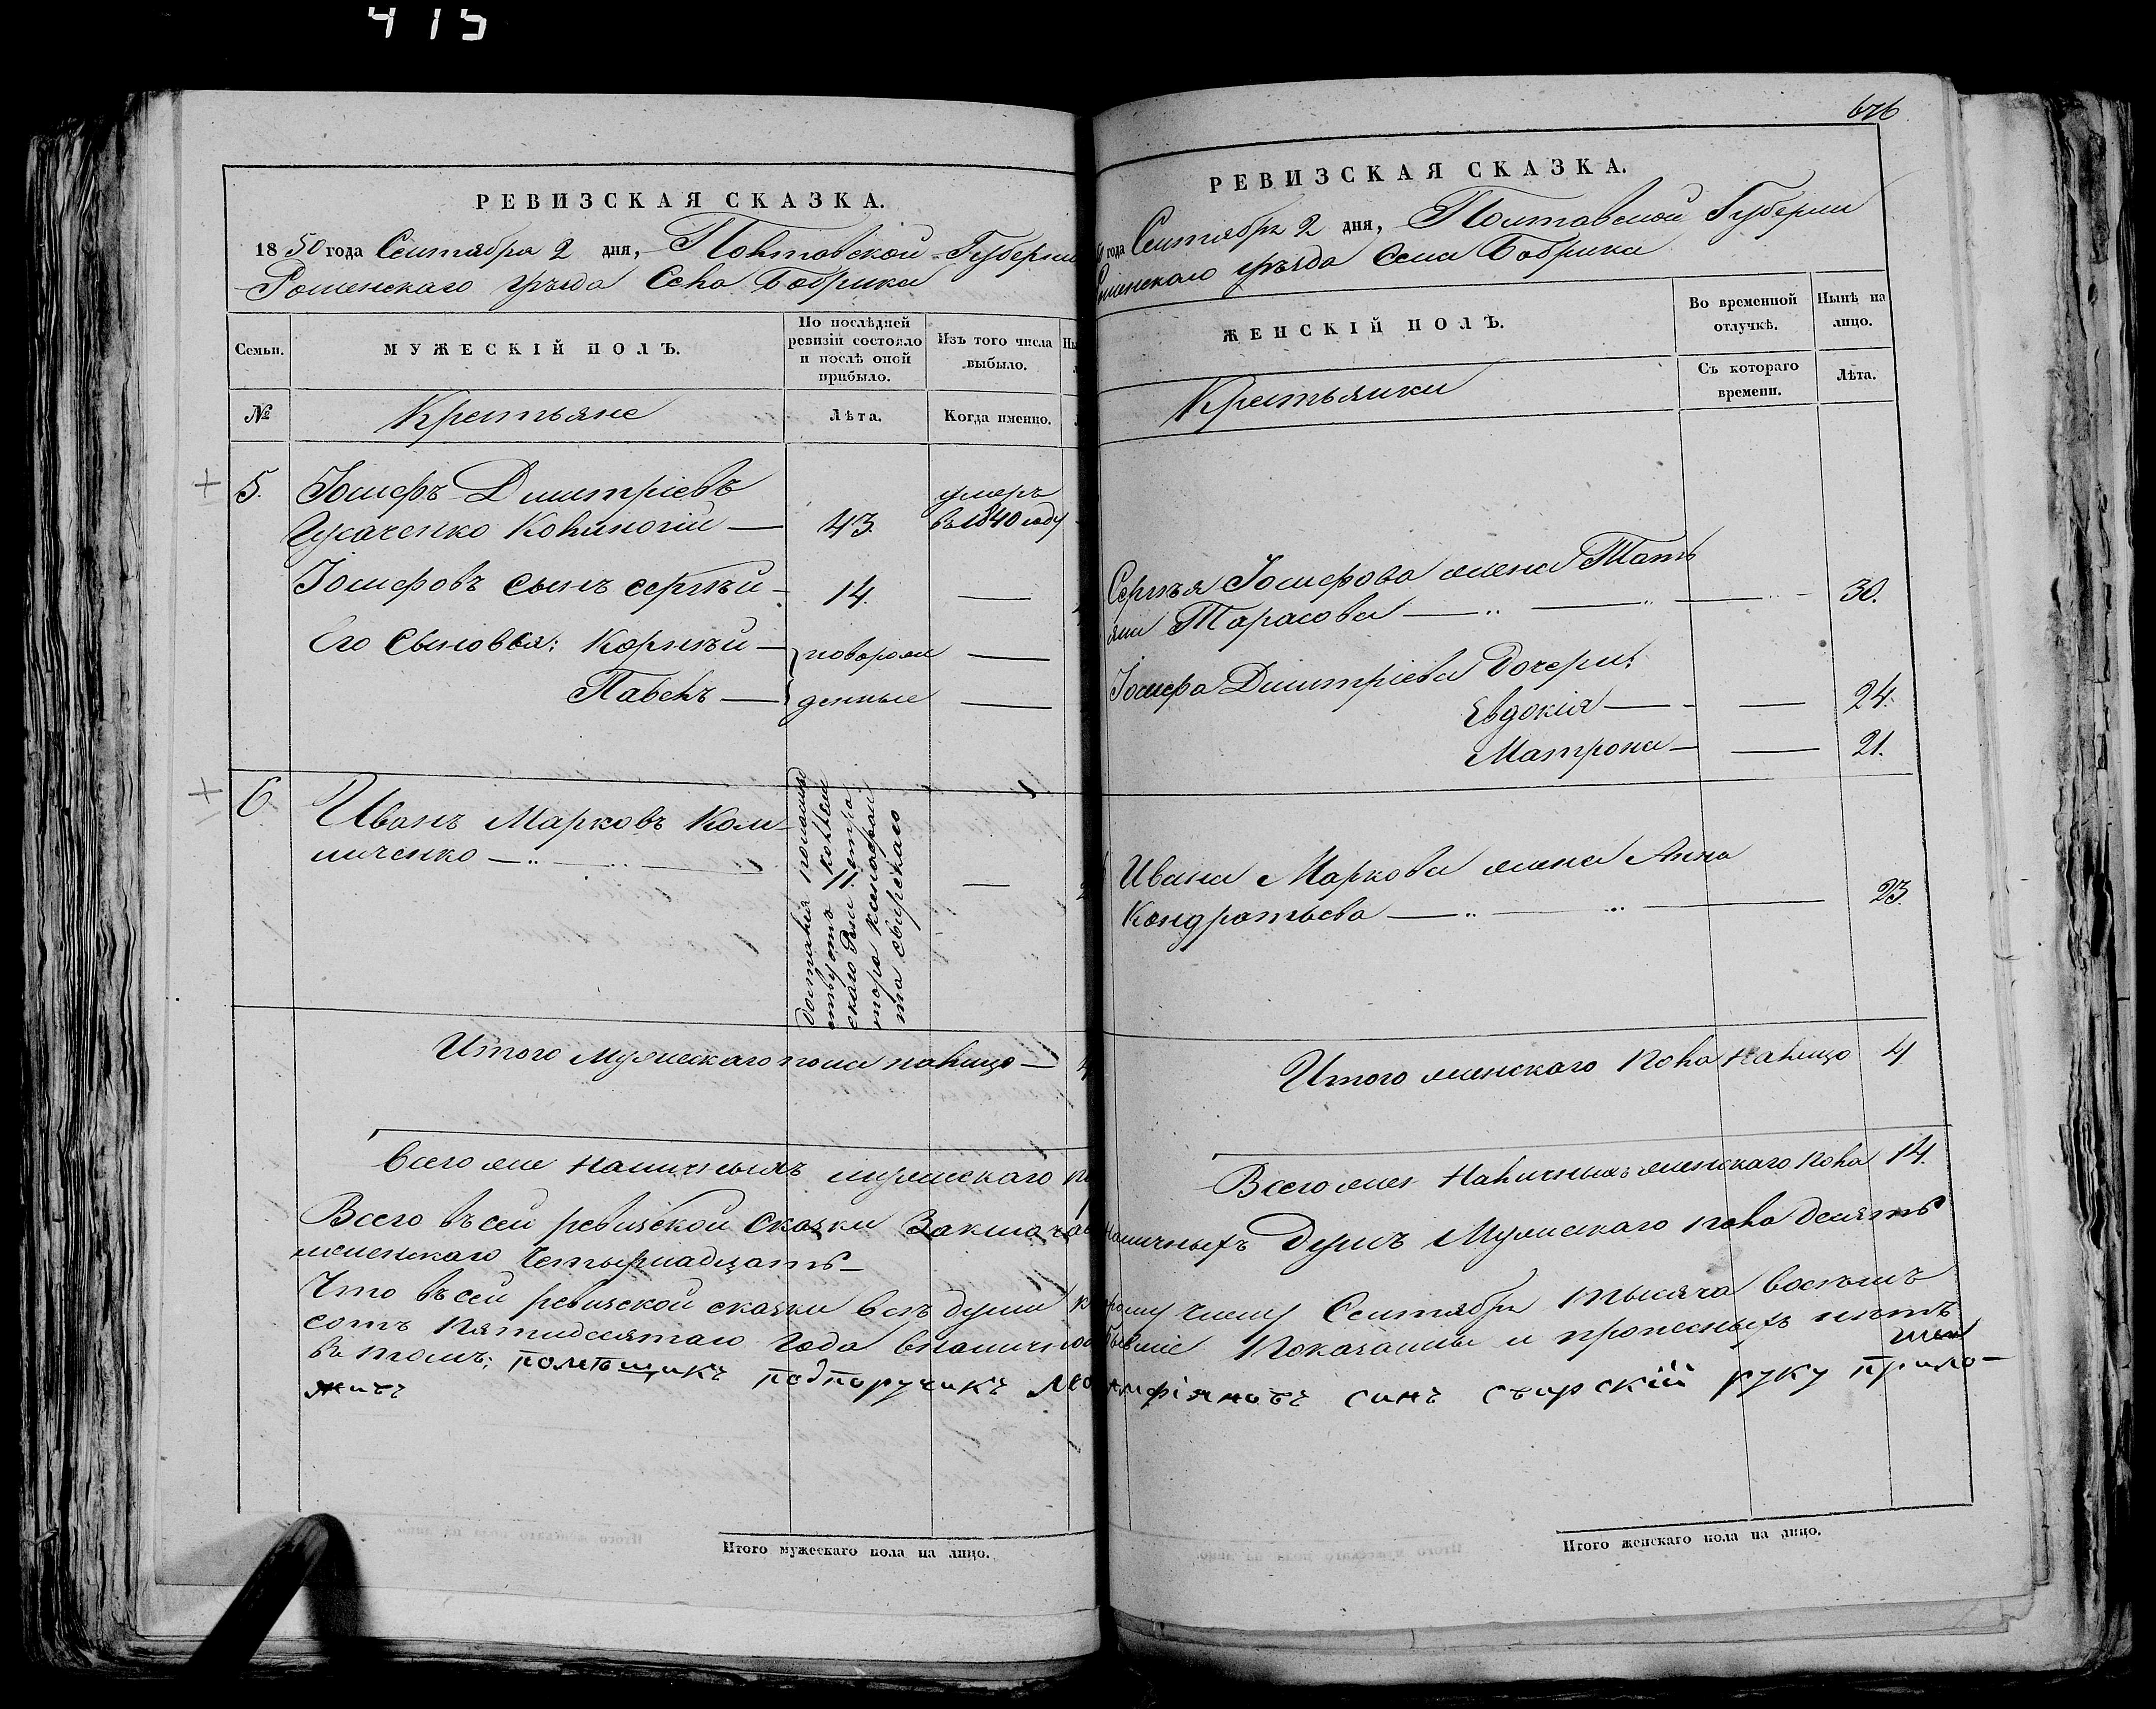 415
РЕВИЗСКАЯ СКАЗКА.
1850 года Сентября 2 дня, Полтавской Губерніи
Роменскаго уѣзда Села Бобрика
Семьи.
МУЖЕСКІЙ ПОЛЪ.
По послѣдней
ревизіи состояло
и послѣ оной
прибыло.
Изъ того числа
выбыло.
№
Крестьяне
Лѣта.
Когда именно.
5. Іосифъ Дмитріевъ
умеръ
Гусаченко Колиногій — 43. въ 1840 году
Іосифовъ сынъ Сергѣй — 14. —
Его Сыновья: Корнѣй — новорож —
Павелъ — денные —
6 Иванъ Марковъ Ком-
ниченко —
Итого Мужескаго пола налицо — 4
Всего же наличныхъ мужескаго по
Всего въ сей ревизской Сказки Заключае
женскаго Четырнадцать —
Что въ сей ревизской сказки всѣ души
сотъ Пятидесятаго года вналично
въ томъ: помѣщикъ подпоручикъ
жилъ
Итого мужескаго пола на лицо.
676
РЕВИЗСКАЯ СКАЗКА.
года Сентября 2 дня, Полтавской Губерніи
Роменскаго уѣзда Села Бобрика
ЖЕНСКІЙ ПОЛЪ.
Во временной
отлучкѣ.
Нынѣ на
лицо.
Крестьянки
Съ котораго
времени.
Лѣта.
Сергѣя Іосифова жена Тать
яна Тарасова — 30.
Іосифа Дмитріева Дочери:
Евдокія — — 24.
Матрона — — 21.
Ивана Маркова жена Анна
Кондратьева — 23.
Итого женскаго пола налицо 4
Всего же наличныхъ женскаго пола 14.
наличныхъ Душъ Мужескаго пола десять
числу Сентября тысяча восемъ
бывшіе Показанны и прописныхъ нѣтъ
синъ руку прило-
Итого женскаго пола на лицо.